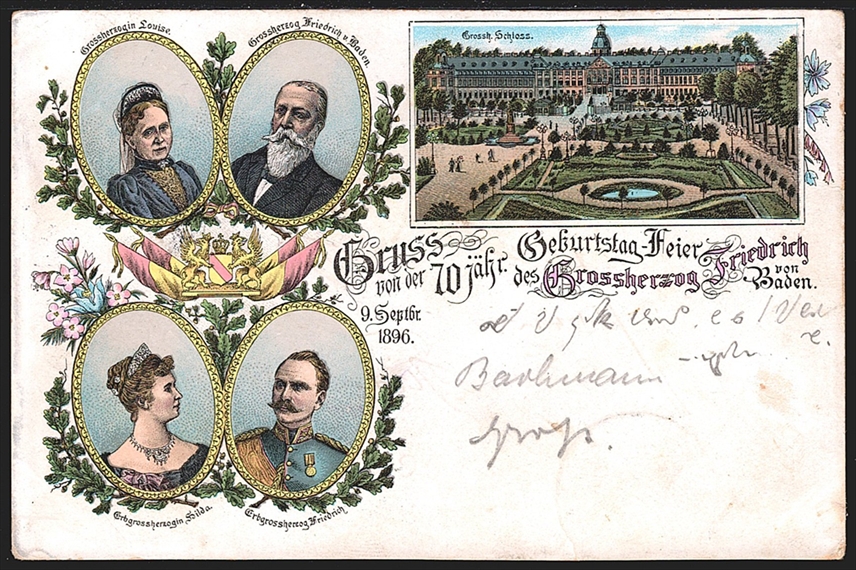 Grossherzogin Louise.
Grossherzog Friedrich v. Baden.
Grossh. Schloss.
Gruss
von der 70 jähr. Geburtstag-Feier
des Grossherzog Friedrich
von Baden.
9. Septbr.
1896.
Bachmann
Erbgrossherzogin Hilda.
Erbgrossherzog Friedrich